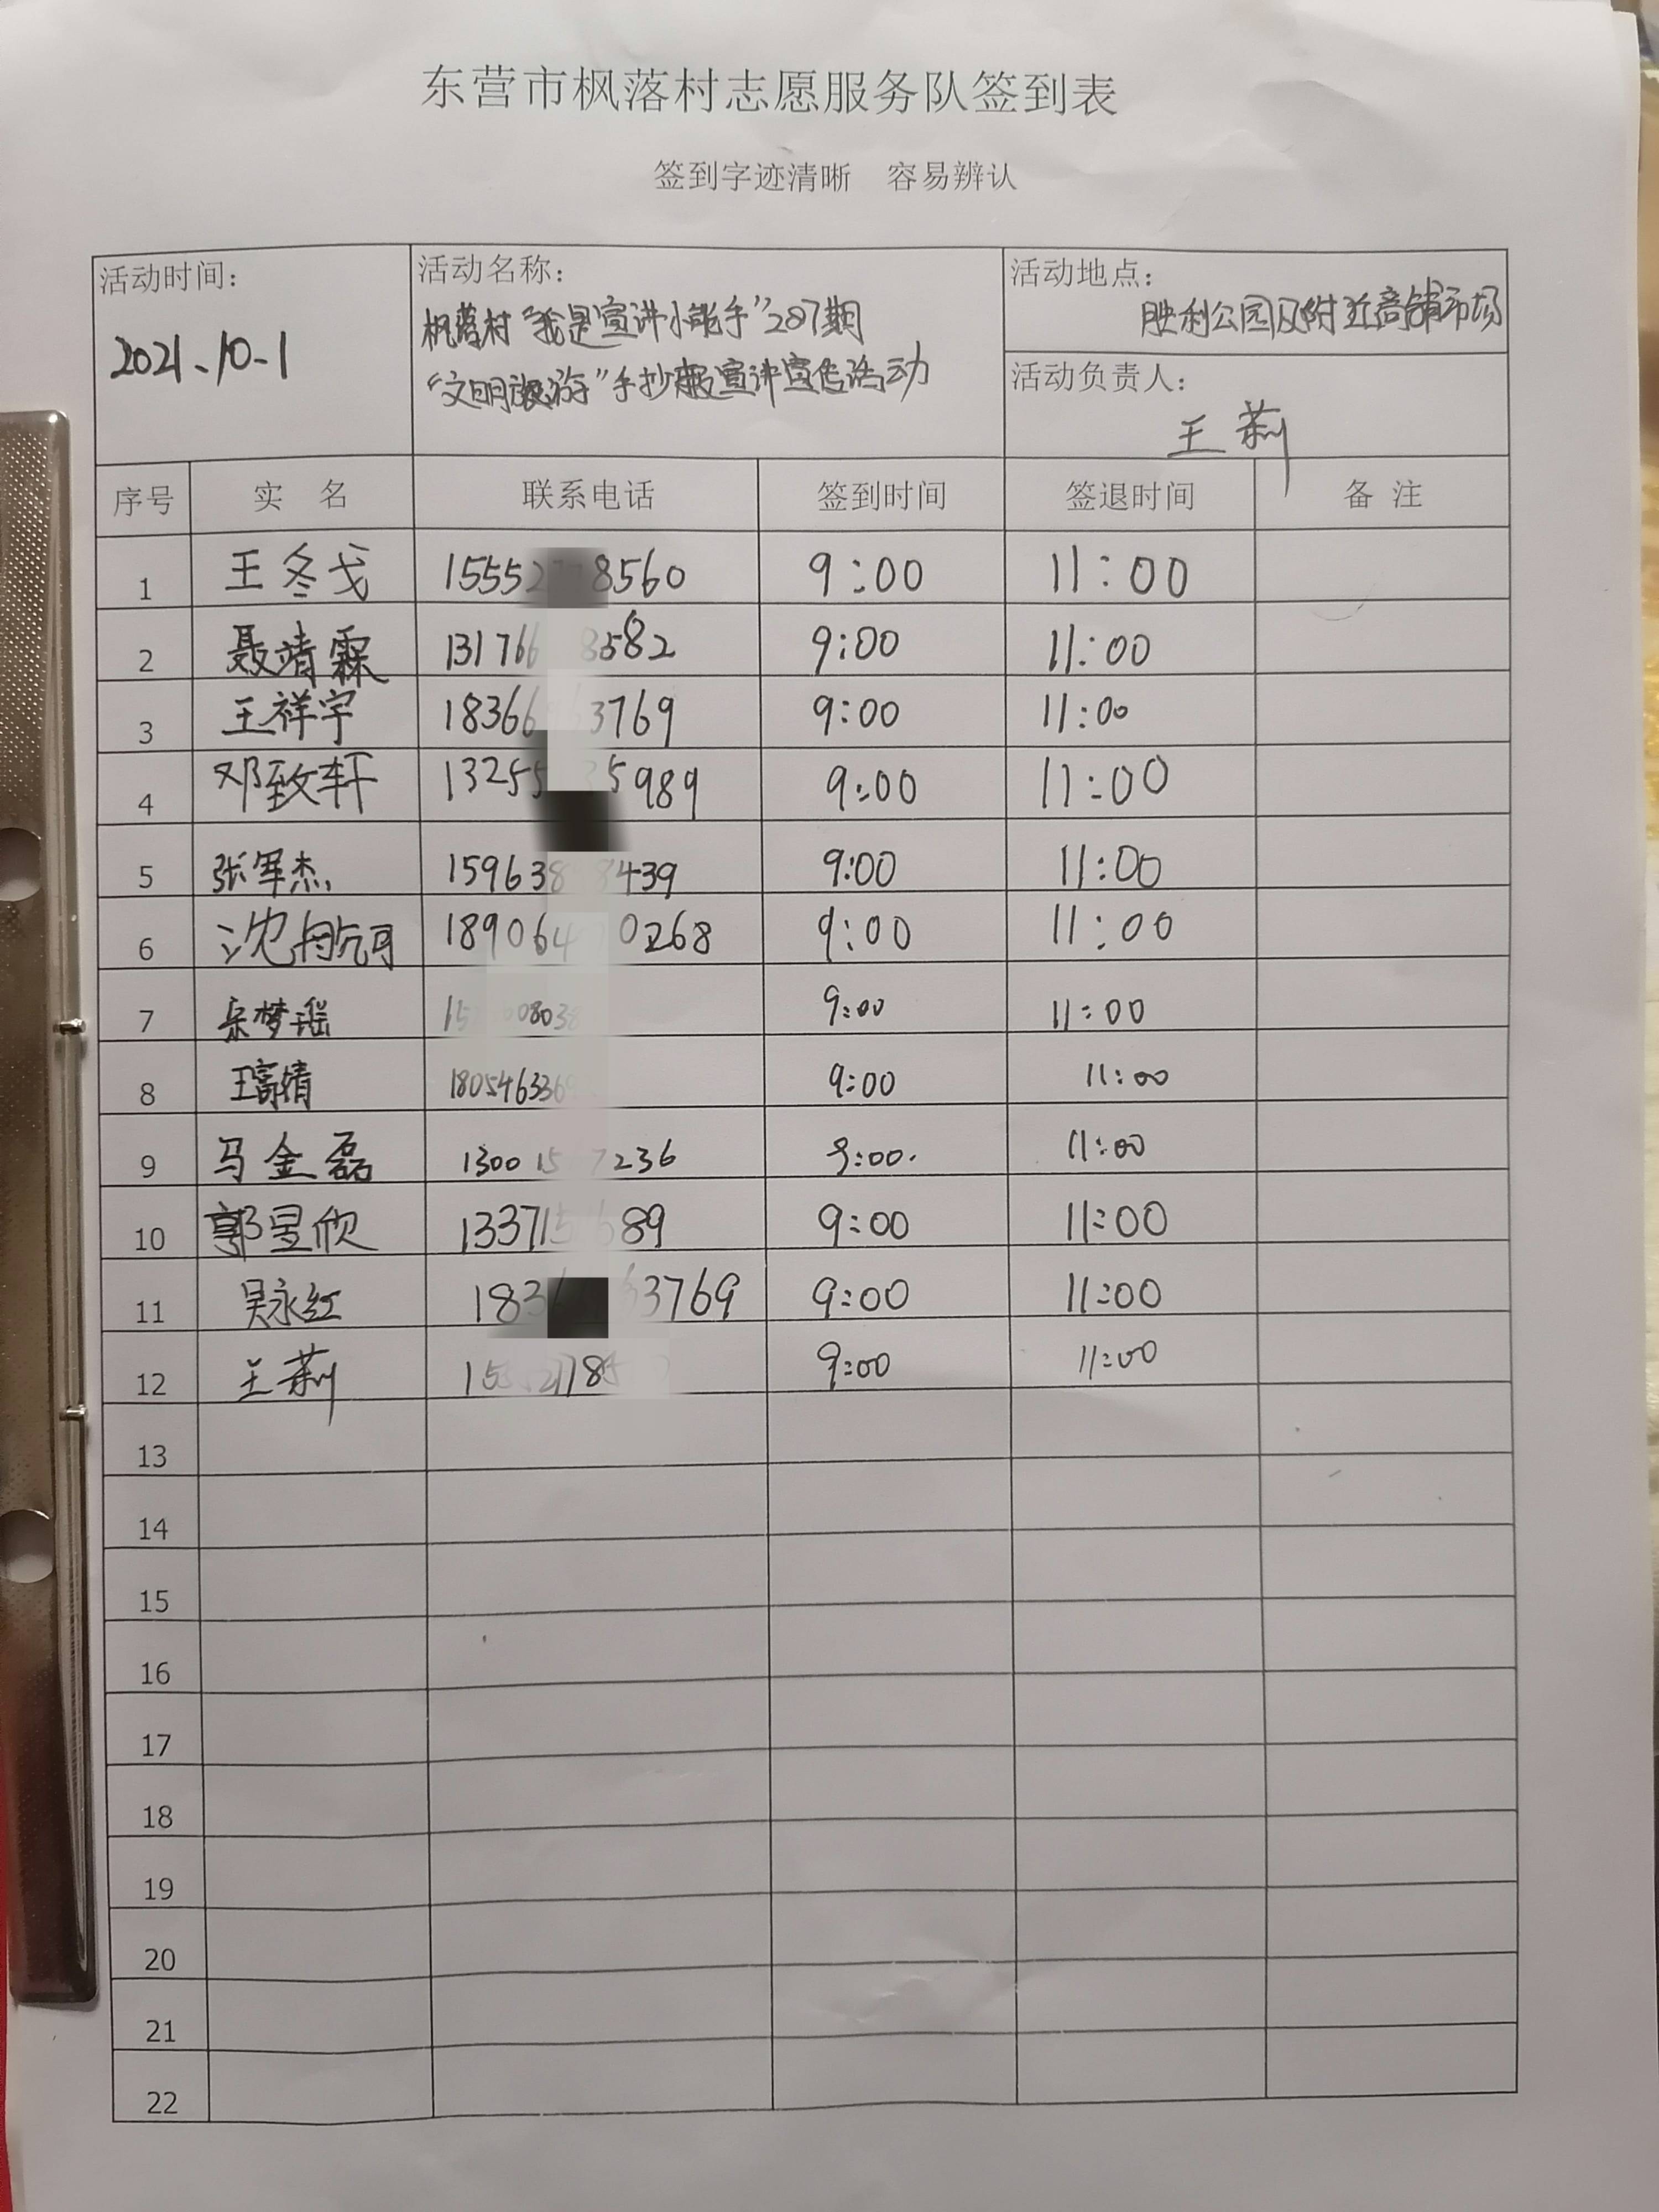 东营市枫落村志愿服务队签到表
签到字迹清晰 容易辨认
活动时间：
2021、10-1
活动名称：
枫落村“我是宣讲小能手”287期
“文明旅游”手抄报宣讲宣传活动
活动地点：
胜利公园及附近商铺市场
活动负责人：
王莉
序号 实 名 联系电话 签到时间 签退时间 备 注
1 王冬戈 15552 8560 9:00 11:00
2 聂靖霖 13176 8582 9:00 11:00
3 王祥宇 18366 3769 9:00 11:00
4 邓致轩 13255 5989 9:00 11:00
5 张军杰 15963 439 9:00 11:00
6 沈 18906 0268 9:00 11:00
7 梦瑶 9:00 11:00
8 王 180546336 9:00 11:00
9 马金磊 130015 7236 9:00. 11:00
10 郭昱欣 13371 689 9:00 11:00
11 吴永红 183 3769 9:00 11:00
12 王莉 9:00 11:00
13
14
15
16
17
18
19
20
21
22